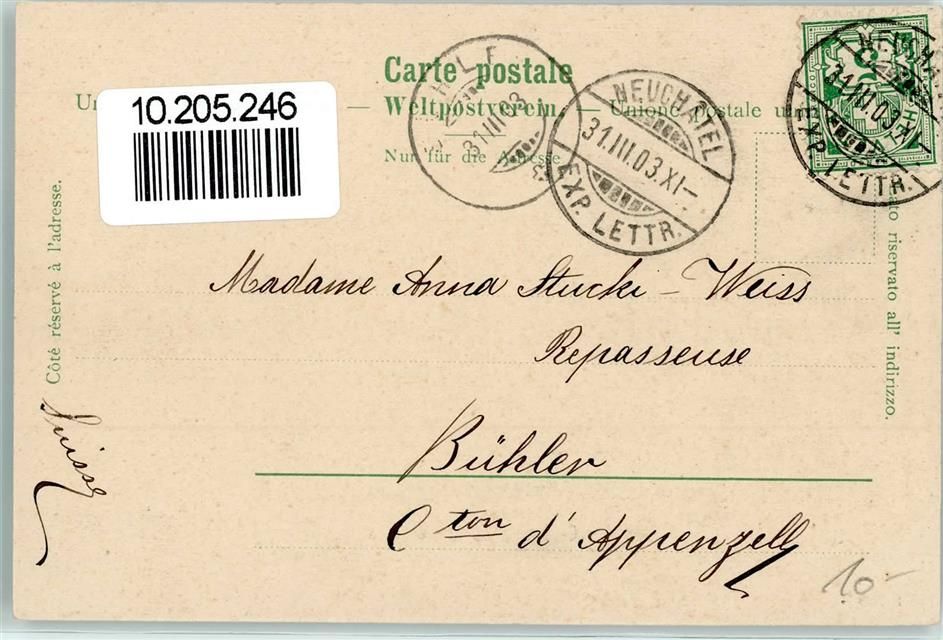 10.205.246
Carte postale
Weltpostverein. — Unione postale
Nur für die Adresse
Côté réservé à l'adresse.
riservato all' indirizzo.
NEUCHATEL
31.III.03.XI-
EXP. LETTR.
NEUCHA
31.III.03.XI
EXP. LETTR.
31.III.03
Madame Anna Stucki - Weiss
Repasseuse
Bühler
Cton d'Appenzell
Suisse
10-